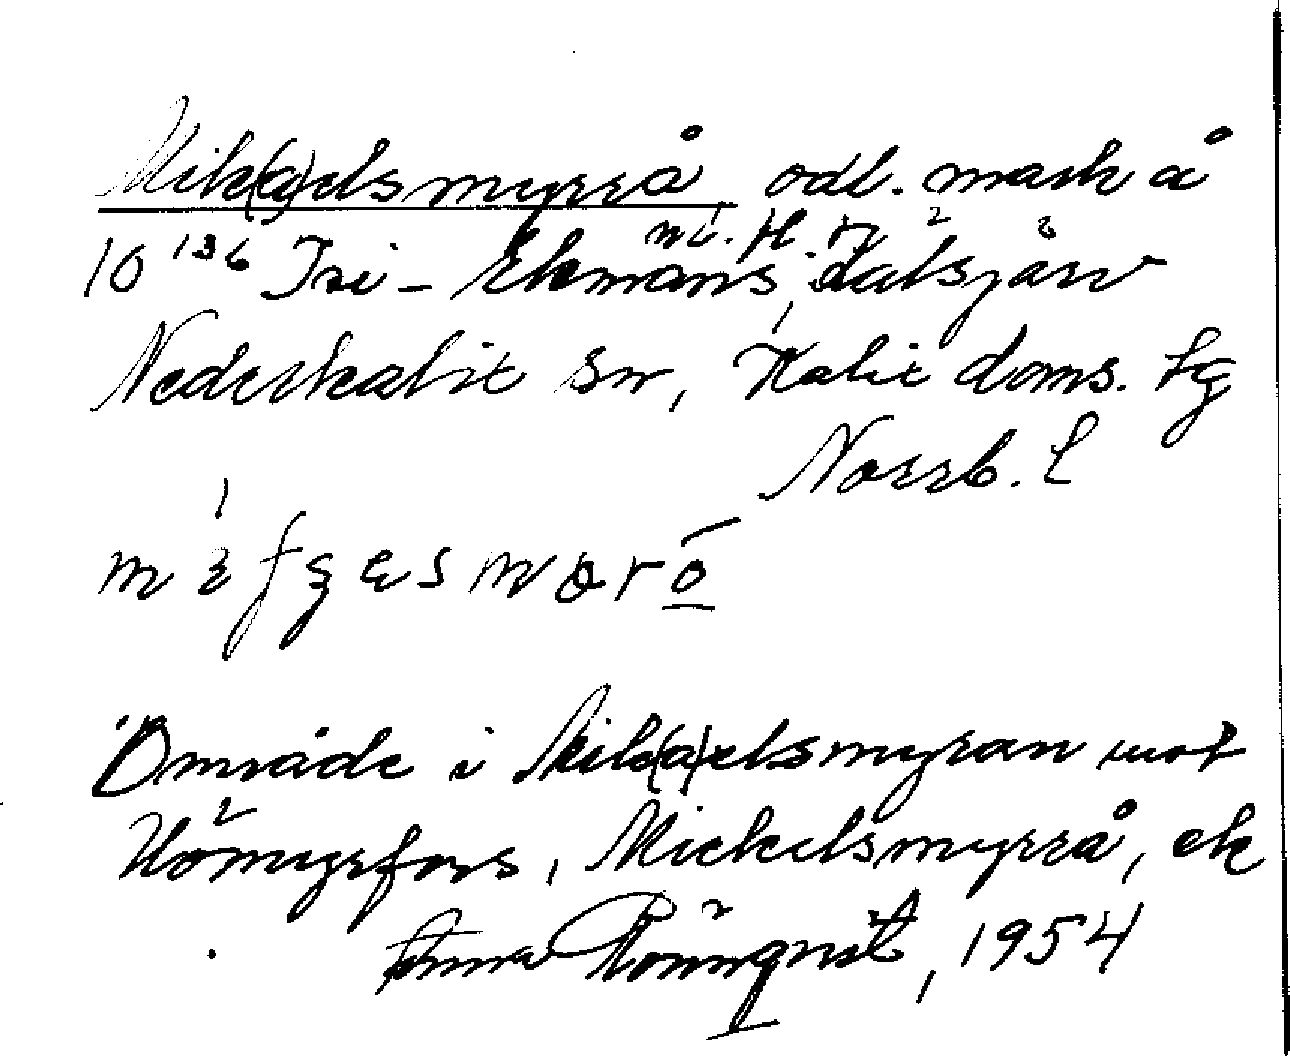 Mik(a)elsmyrrå, odl. mark å
10¹³⁶ Tri-Ekmans, Räktsjärv
Nederkalix sn, Kalix doms. tg
Norrb. L
Område i Mik(a)elsmyran mot
Hömyrfors, Mickelsmyrrå, ek
Anna Rönnqvist, 1954